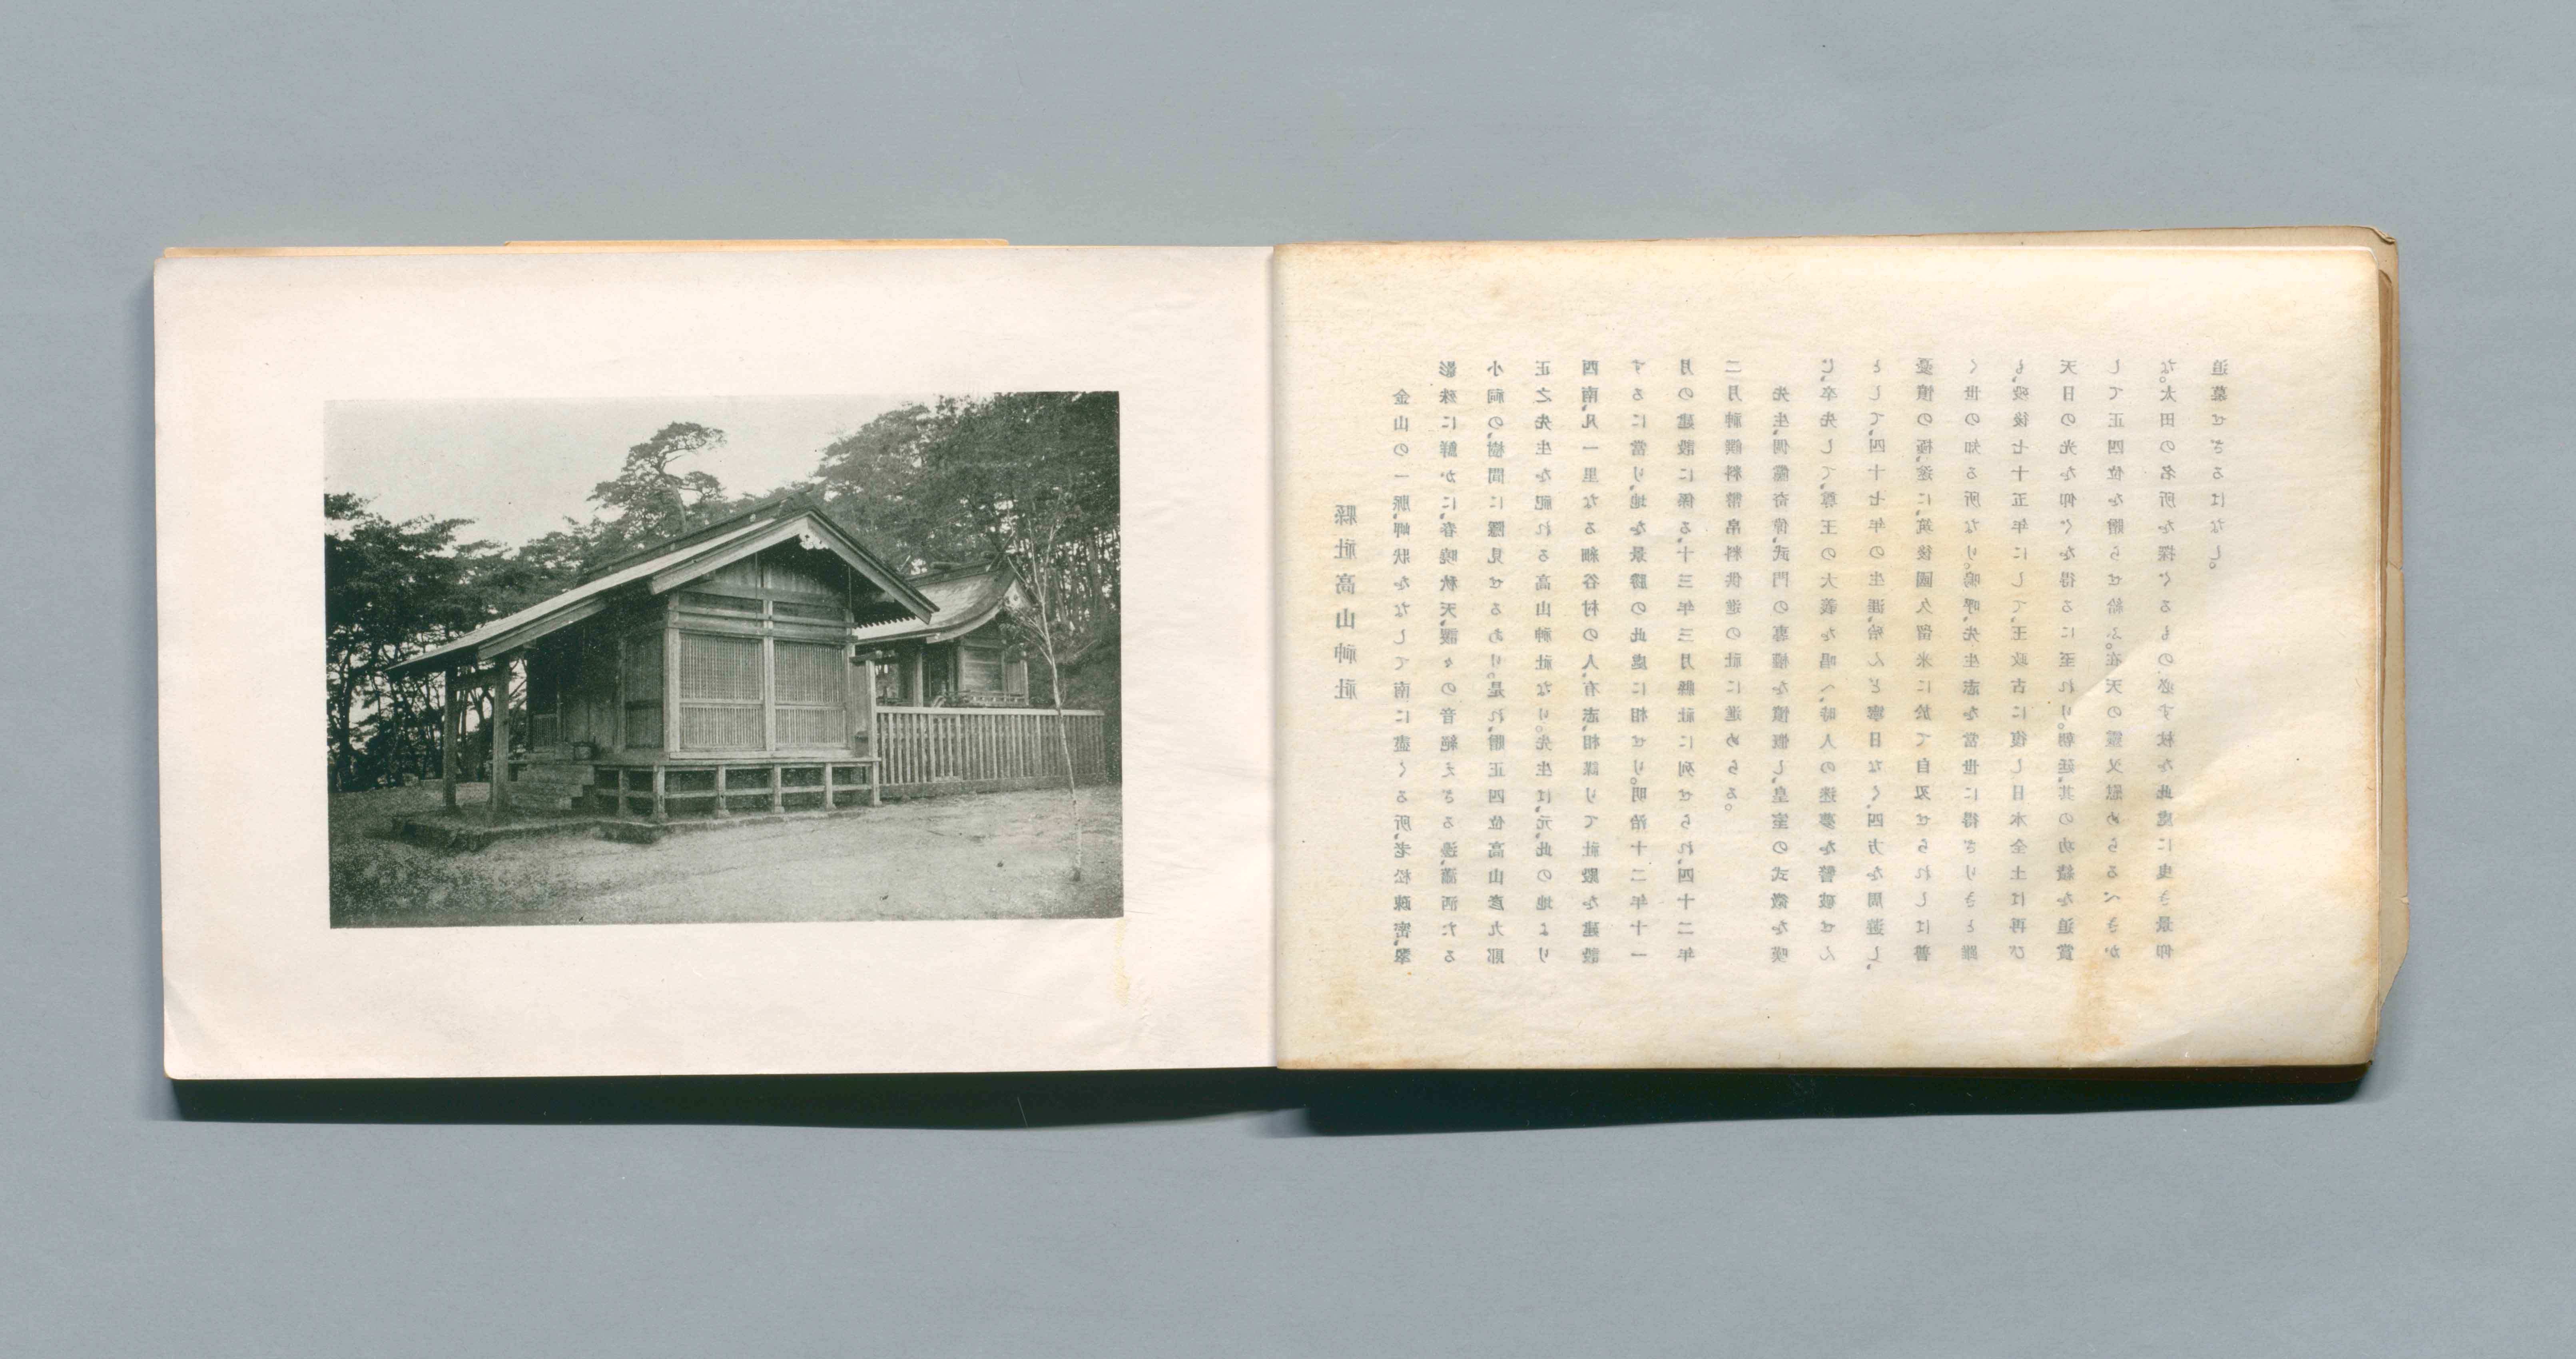 縣社高山神社
金山の一脈、岬狀をなして南に盡くる所、老松疎密、翠
影殊に鮮かに、春曉秋天、謖々の音絕えざる邊、瀟洒たる
小祠の、樹間に隱見せるあり。是れ、贈正四位高山彥九郞
正之先生を祀れる高山神社なり。先生は、元、此の地より
西南、凡一里なる細谷村の人、有志、相謀りて社殿を建設
するに當り、地を景勝の此處に相せり。明治十二年十一
月の建設に係る、十三年三月縣社に列せられ、四十二年
二月神饌料幣帛料供進の社に進めらる。
先生、倜儻奇偉、武門の專權を憤慨し、皇室の式微を嘆
じ、卒先して、尊王の大義を唱へ、時人の迷夢を警破せん
として、四十七年の生涯、殆んど寧日なく、四方を周遊し、
憂憤の極、遂に、筑後國久留米に於て自刃せられしは普
く世の知る所なり。嗚呼、先生志を當世に得ざりきと雖
も、歿後七十五年にして、王政古に復し日本全土は再び
天日の光を仰ぐを得るに至れり。朝廷、其の功績を追賞
して正四位を贈らせ給ふ。在天の靈又慰めらるべきか
な。太田の名所を探ぐるもの、必ず杖を此處に曳き景仰
追慕せざるはなし。